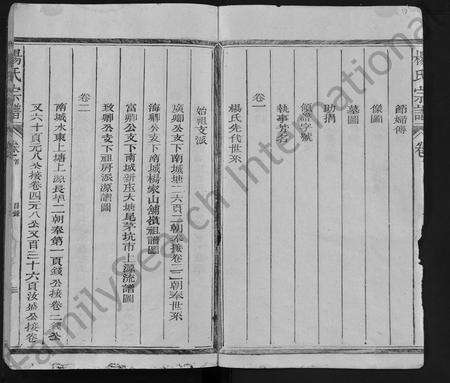 楊氏宗譜
卷
節婦傳
像圖
墓圖
助捐
領譜字號
執事芳名
卷一
楊氏先代世系
始祖支派
廣卿公支下南城塘二六頁二朝奉接卷二二朝奉世系
海卿公支下南城楊家山舖橫祖譜圖
富卿公支下南城新庄大塘尾茅坑市上源流譜圖
玫卿公支下祖房派源譜圖
卷二
南城水東上塘上源長年二朝奉第二頁錢公接卷二
又六十頁元八公接卷四元八公又百三十六頁汝公接卷
楊氏宗譜
卷
目錄
FamilySearch International